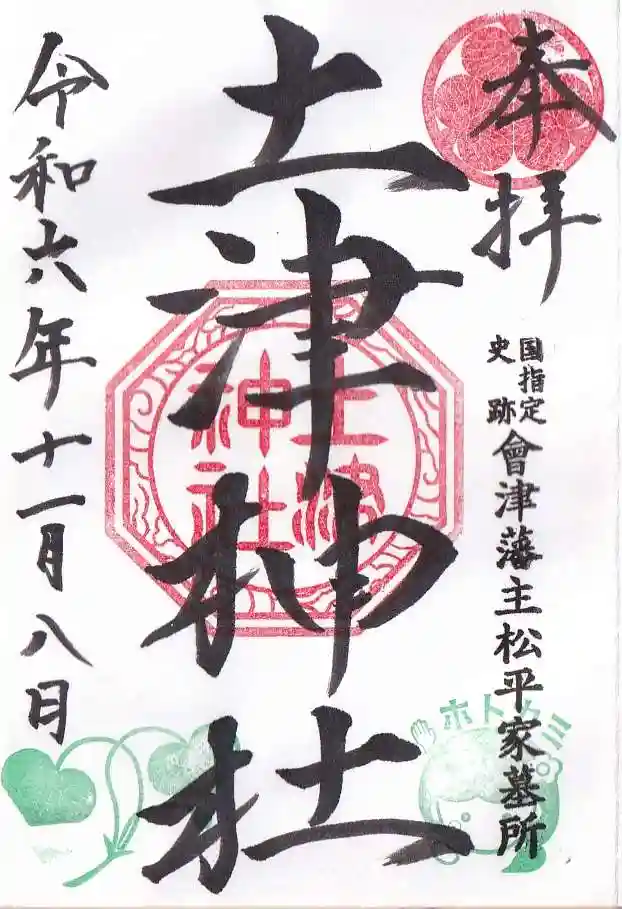 奉拝
国指定
史跡
會津藩主松平家墓所
土津神社
土津
神社
令和六年十一月八日
ホトカミ